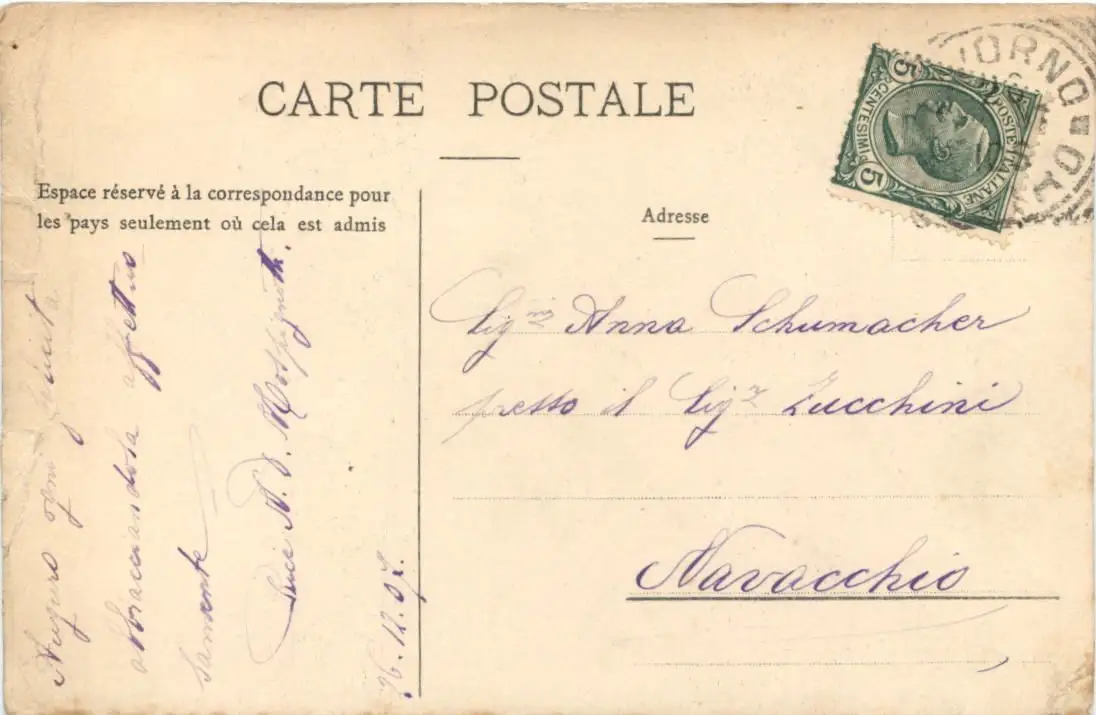 CARTE POSTALE
Espace réservé à la correspondance pour
les pays seulement où cela est admis
Adresse
5 CENTESIMI 5
POSTE ITALIANE
Auguro ogni felicità
abbracciandola affettuo
samente
26.12.07.
Sig.na Anna Schumacher
presso il Sig.r Zucchini
Navacchio